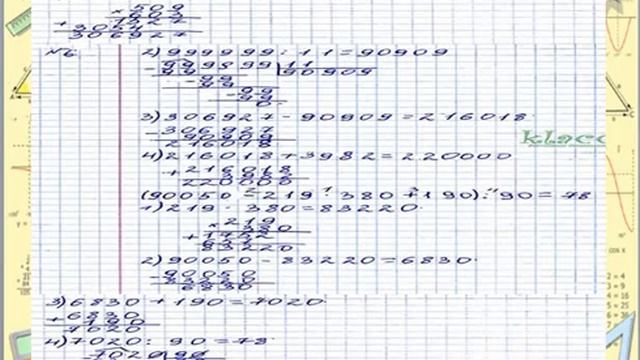 × 509
603
+ 1527
3054
306927
№6. 2) 999999 : 11 = 90909
- 999899 11
99 90909
- 99
99
- 99
99
0
3) 306927 - 90909 = 216018
- 306927
90909
216018
4) 216018 + 3982 = 220000
+ 216018
3982
220000
(90050 - 219 · 380 + 190) : 90 = 78
1) 219 · 380 = 83220
× 219
380
+ 1752
657
83220
2) 90050 - 83220 = 6830
- 90050
83220
6830
3) 6830 + 190 = 7020
+ 6830
190
7020
4) 7020 : 90 = 78
7020 90